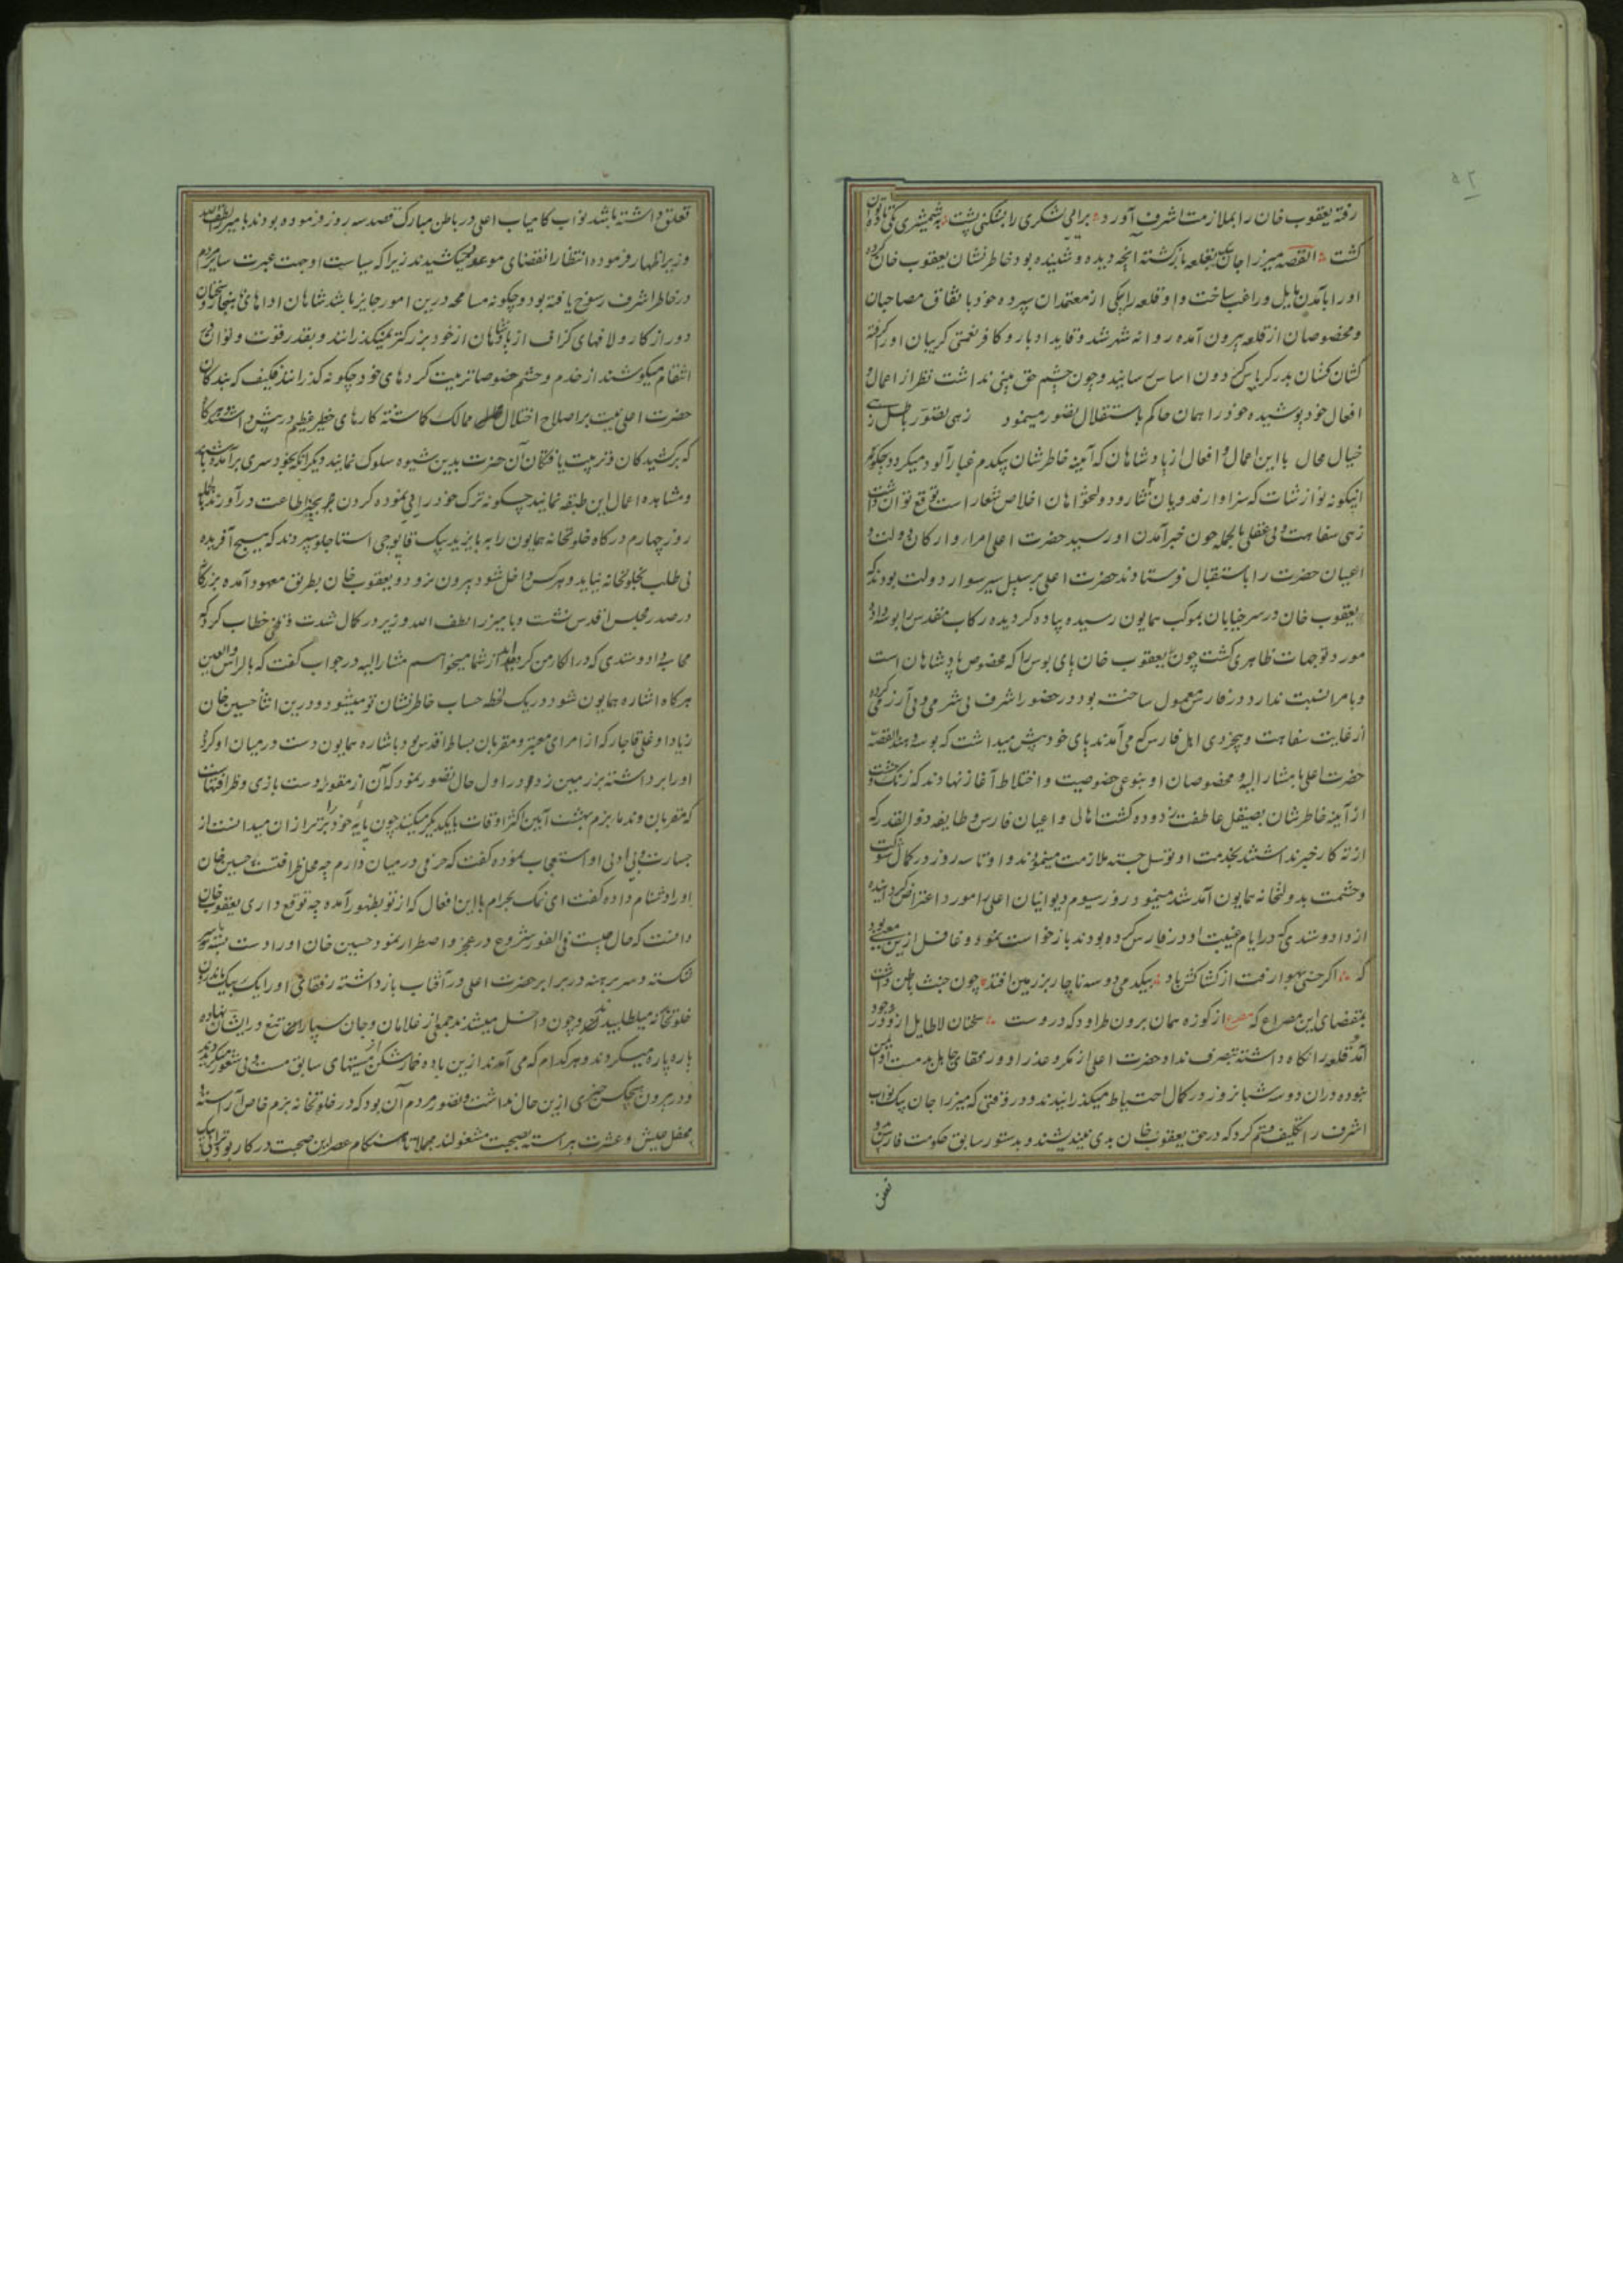 رفته یعقوب خان را بملازمت اشرف آورد برامی لشکری را بشکنی پشت بشمشیری یکی تا ده توان
کشت القصه میرزا جان بیک بقلعه بازگشته آنچه دیده و شنیده بود خاطرنشان یعقوب خان کرده
او را بآمدن مایل و راغب ساخت و او قلعه را بیکی از معتمدان سپرده خود با نفاق مصاحبان
و مخصوصان از قلعه بیرون آمده روانه شهر شد و قاید ادبار و کافر نعمتی گریبان او گرفته
کشان کشان بدرگریاس گردون اساس رسانید و چون چشم حق بینی نداشت نظر از اعمال و
افعال خود پوشیده خود را همان حاکم باستقلال تصور مینمود زهی تصور باطل زهی
خیال محال با این اعمال و افعال از پادشاهان که آیینه خاطرشان بیکدم غبارآلود میگردد چگونه
اینگونه نوازشات که سزاوار فدویان جان نثار و دولتخواهان اخلاص شعار است توقع توان داشت
زهی سفاهت و بی عقلی بالجمله چون خبر آمدن او رسید حضرت اعلی امرا و ارکان دولت و
اعیان حضرت را باستقبال فرستادند حضرت اعلی بر سبیل سیر سوار دولت بودند که
یعقوب خان در سر خیابان بموکب همایون رسیده پیاده گردیده رکاب مقدس را بوسه داد و
مورد توجهات ظاهری گشت چون یعقوب خان پای بوس را که مخصوص پادشاهان است
و بامرا نسبت ندارد در فارس معمول ساخته بود در حضور اشرف بی شرمی و بی آزرمی کرده
از غایت سفاهت و بیخردی اهل فارس که می آمدند پای خود پیش میداشت که بوسه دهند القصه
حضرت اعلی با مشار الیه و مخصوصان او بنوعی خصوصیت و اختلاط آغاز نهادند که زنگ وحشت
از آینه خاطرشان بصیقل عاطفت زدوده گشت اهالی و اعیان فارس و طایفه ذوالقدر که
از ته کار خبر نداشتند بخدمت او توسل جسته ملازمت مینمودند و او تا سه روز در کمال شوکت
و حشمت بدولتخانه همایون آمد شد مینمود روز سیوم دیوانیان اعلی را مورد اعتراض گردانیده
از داد و ستدی که در ایام غیبت او در فارس کرده بودند بازخواست نمود و غافل ازین معنی بود
که اگر خسی بهوا رفت از کشاکش باد بیکدمی دو سه ناچار بر زمین افتد چون خبث باطن داشت
بمقتضای این مصراع که مصرع از کوزه همان برون طراود که دروست سخنان لاطایل از او در وجود
آمد و قلعه را نگاه داشته بتصرف نداد حضرت اعلی از مکر و غدر او و رفقای جاهل بدمست او ایمن
نبوده در آن دو سه شبانروز در کمال احتیاط میگذرانیدند و در وقتی که میرزا جان بیک نواب
اشرف را تکلیف قسم کرد که در حق یعقوب خان بدی نیندیشند و بدستور سابق حکومت فارس بدو
تعلق
تعلق داشته باشد نواب کامیاب اعلی در باطن مبارک قصد سه روز فرموده بودند با میرزا لطف الله
وزیر اظهار فرموده انتظار انقضای موعد میکشیدند زیرا که سیاست او جهت عبرت سایر مردم
در خاطر اشرف رسوخ یافته بود و چگونه مسامحه درین امور جایز باشد شاهان اداهای ناهنجار و سخنان
دور از کار و لافهای گزاف از پادشاهان از خود بزرگتر نمیگذرانند و بقدر قوت و توان در
انتقام میکوشند از خدم و حشم خصوصا تربیت کرده های خود چگونه گذرانند فکیف که بندگان
حضرت اعلی همت بر اصلاح اختلال ممالک گماشته کارهای خطیر عظیم در پیش داشتند هرگاه
که برکشیدگان و تربیت یافتگان آن حضرت بدین شیوه سلوک نمایند دیگرانکه بخود سری برآمده باشند
و مشاهده اعمال این طبقه نمایند چگونه ترک خودرایی نموده گردن بچنبر اطاعت درآورند بالجمله
روز چهارم درگاه خلوتخانه همایون را به بایزید بیک قاپوچی استاجلو سپردند که هیچ آفریده
بی طلب بخلوتخانه نیاید و هرکس داخل شود بیرون نرود و یعقوب خان بطریق معهود آمده بزرگانه
در صدر مجلس اقدس نشست و با میرزا لطف الله وزیر در کمال شدت و خطاب کرد که
محاسبه داد و ستدی که در الکا من کرده اید از شما میخواهم مشار الیه در جواب گفت که بالراس والعین
هرگاه اشاره همایون شود در یک لحظه حساب خاطرنشان تو میشود و درین اثنا حسین خان
زیاد اوغلی قاجار که از امرای معتبر و مقربان بساط اقدس بود باشاره همایون دست در میان او کرد و
او را برداشته بر زمین زد او در اول حال تصور نمود که آن از مقوله دست بازی و ظرافتهاست
که مقربان و ندما بزم بهشت آیین اکثر اوقات با یکدیگر میکنند چون پایه خود را برتر از آن میدانست از
جسارت و بی ادبی او استعجاب نموده گفت که حرفی در میان داریم چه محل ظرافتست حسین خان
او را دشنام داده گفت ای نمک بحرام با این افعال که از تو بظهور آمده چه توقع داری یعقوب خان
دانست که حال چیست فی الفور شروع در عجز و اضطرار نمود حسین خان او را دست بسته سر
شکسته و سر برهنه در برابر حضرت اعلی در آفتاب باز داشته رفقای او را یک بیک باندرون
خلوتخانه میطلبیدند و چون داخل میشدند جمعی از غلامان و جان سپاران تیغ در ایشان نهاده
پاره پاره میکردند و هرکدام که می آمدند ازین باده خمارشکن از مستیهای سابق مست و بی شعور میگردیدند
و در بیرون هیچکس خبری ازین حال نداشت و تصور مردم آن بود که در خلوتخانه بزم خاص آراسته و
محفل عیش و عشرت پیراسته بصحبت مشغولند مجملا تا هنگام عصر این صحبت در کار بود